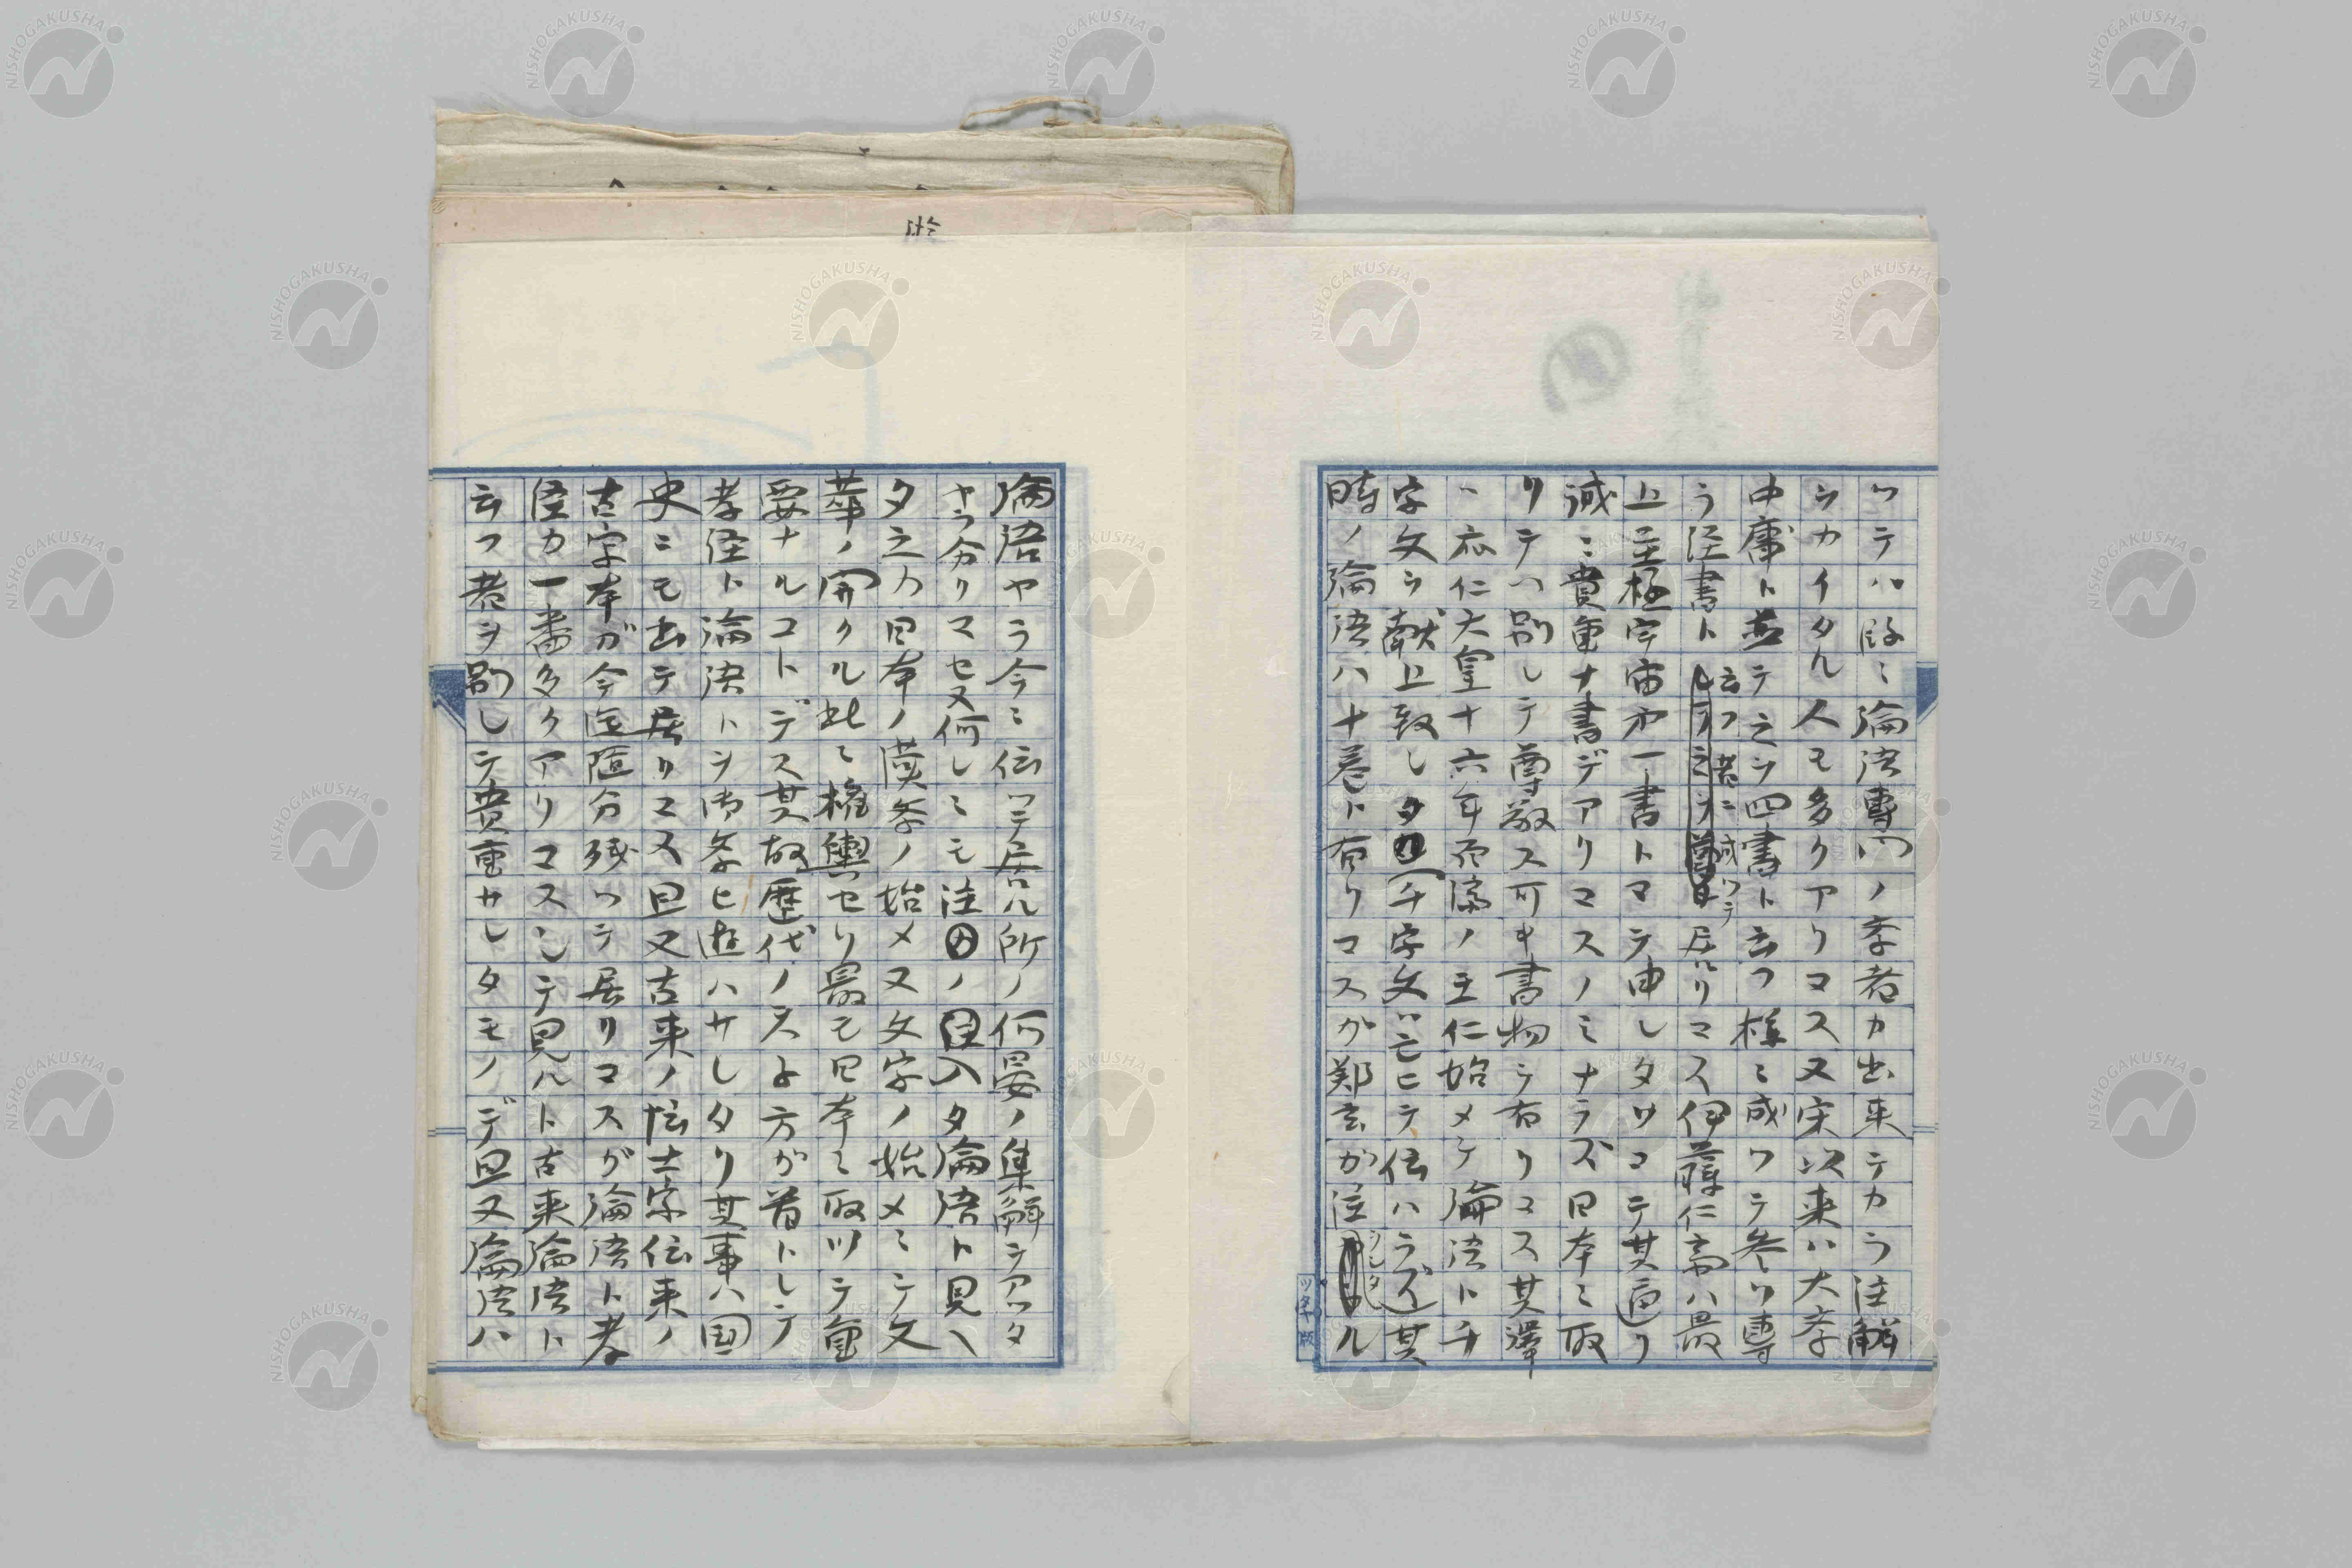 ツテハ段ミ論語專門ノ学者カ出来テカラ注解
ヲカイタル人モ多クアリマス又宋以来ハ大学
中庸ト並テ之ヲ四書ト云フ様ミ成ツテ参リ専
ラ経書ト云フ者ニ成ツテ居リマス伊藤仁斎ハ最
上至極宇宙第一書トマテ申シタツマテ其通リ
誠ミ貴重ナ書デアリマスノミナラズ日本ミ取
リテハ別シテ尊敬ス可キ書物ラ有リマス其譯
ハ応仁天皇十六年百済ノ王仁始メテ論語ト千
字文ヲ献上致シタ千字文ハ亡ヒテ伝ハラズ其
時ノ論語ハ十巻ト有リマスガ鄭玄ガ注シタル
論語ヤラ今ミ伝ツテ居ル所ノ何晏ノ集解テアツタ
ヤラ分リマセヌ何レミモ注ノ入タ論語ト見ヘ
タ之カ日本ノ漢学ノ始メ又文字ノ始メミテ文
華ノ開クル此ミ権輿セリ最モ日本ミ取ツテ重
要ナルコトデス其故歴代ノ天子方ガ首トシテ
孝経ト論語トヲ御学ヒ遊ハサレタリ其事ハ国
史ニモ出テ居リマス且又古来ノ伝士家伝来ノ
古写本ガ今随分残ツテ居リマスガ論語ト孝
経カ一番多クアリマスシテ見ルト古来論語ト
云フ者ヲ別シテ貴重サレタモノデ且又論語ハ
ツタヤ版
NISHOGAKUSHA